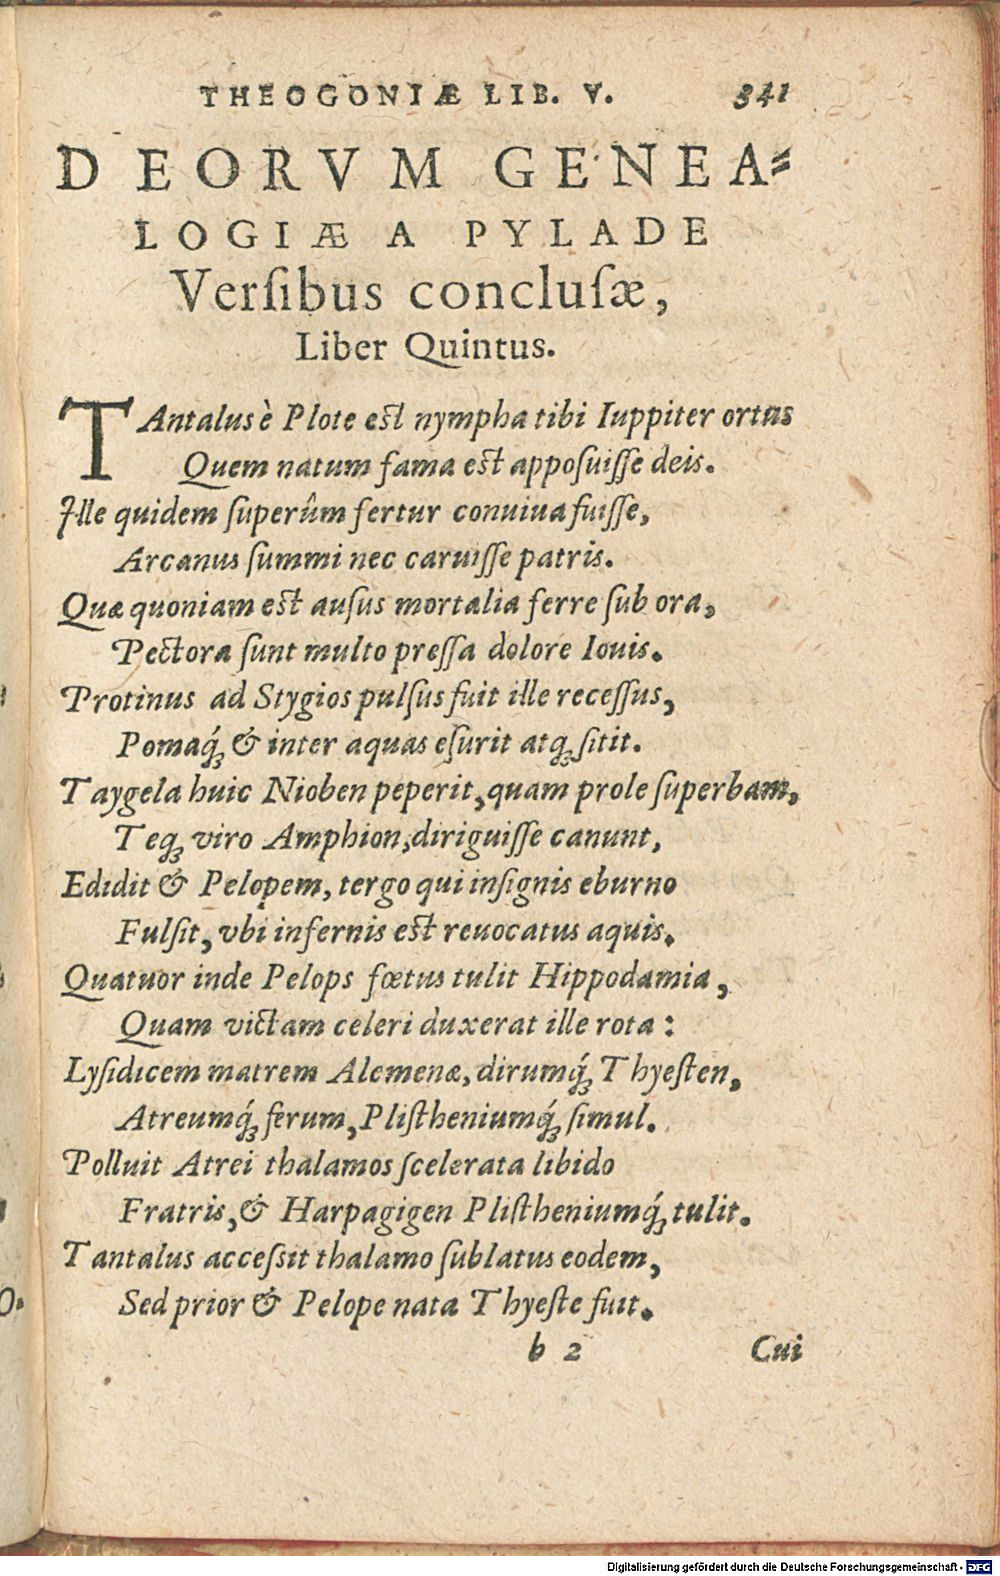 THEOGONIÆ LIB. V. 341
DEORVM GENEA⸗
LOGIÆ A PYLADE
Verſibus concluſæ,
Liber Quintus.
TAntalus è Plote eſt nympha tibi Iuppiter ortus
Quem natum fama eſt appoſuiſſe deis.
Ille quidem ſuperûm fertur conuiua fuiſſe,
Arcanus ſummi nec caruiſſe patris.
Quæ quoniam eſt auſus mortalia ferre ſub ora,
Pectora ſunt multo preſſa dolore Iouis.
Protinus ad Stygios pulſus fuit ille receſſus,
Pomaq́; & inter aquas eſurit atq; ſitit.
Taygela huic Nioben peperit, quam prole ſuperbam,
Teq; viro Amphion, diriguiſſe canunt,
Edidit & Pelopem, tergo qui inſignis eburno
Fulſit, vbi infernis eſt reuocatus aquis.
Quatuor inde Pelops fœtus tulit Hippodamia,
Quam victam celeri duxerat ille rota:
Lyſidicem matrem Alcmenæ, dirumq́; Thyeſten,
Atreumq́; ferum, Pliſtheniumq́; ſimul.
Polluit Atrei thalamos ſcelerata libido
Fratris, & Harpagigen Pliſtheniumq́; tulit.
Tantalus acceſsit thalamo ſublatus eodem,
Sed prior & Pelope nata Thyeſte fuit.
b 2 Cui
O.
Digitalisierung gefördert durch die Deutsche Forschungsgemeinschaft - DFG